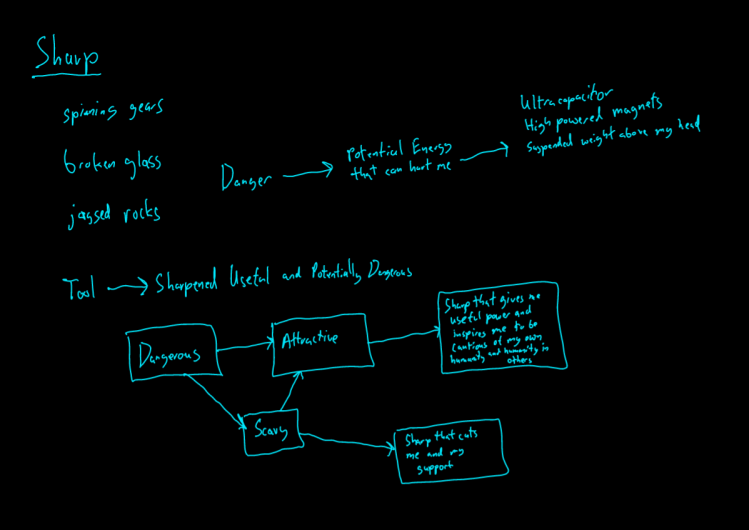 Sharp
spinning gears
broken glass
jagged rocks
Danger
Potential Energy
that can hurt me
Ultracapacitor
High powered magnets
suspended weight above my head
Tool
Sharpened Useful and Potentially Dangerous
Dangerous
Attractive
Scary
Sharp that gives me
useful power and
inspires me to be
cautious of my own
humanity and humanity in
others
Sharp that cuts
me and my
support